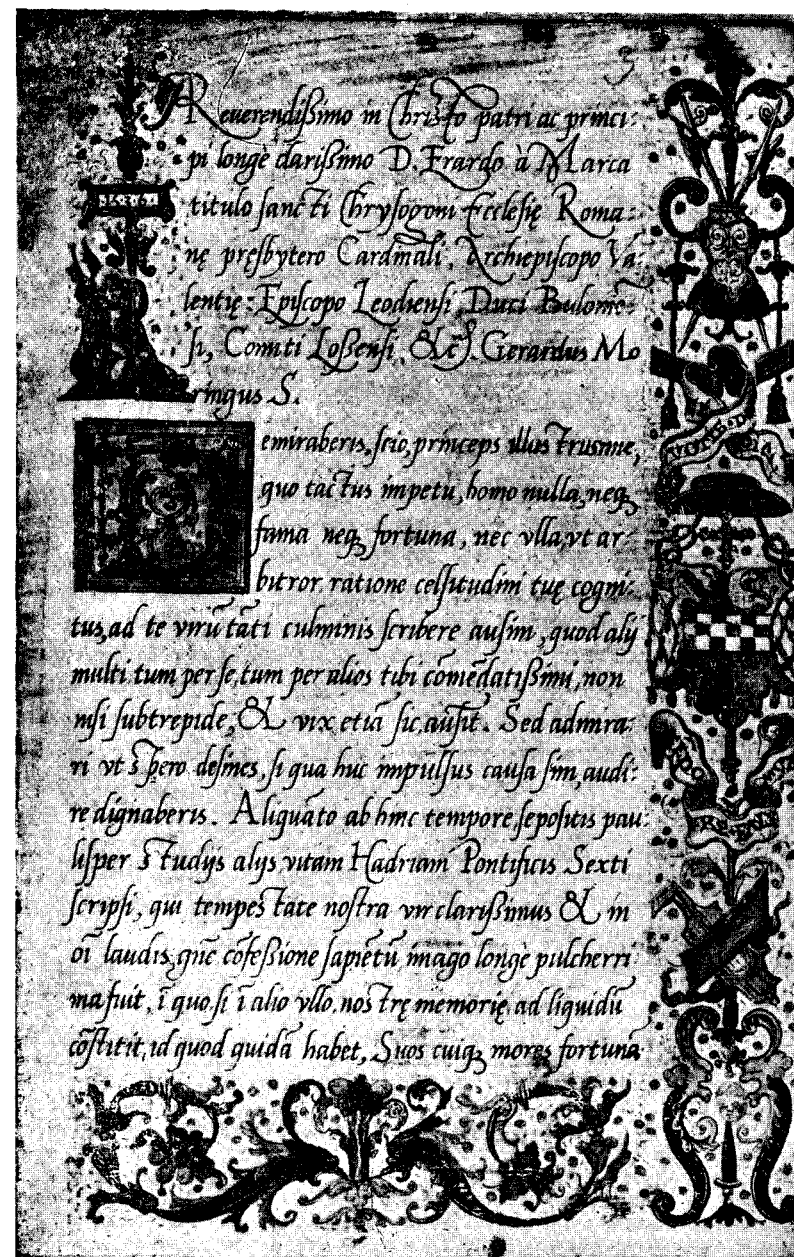 Reuerendißimo in Christo patri ac princi:
pi longè clarißimo D. Erardo à Marca
titulo sancti Chrysogoni Ecclesię Roma:
nę pręsbytero Cardinali, Archiepiscopo Va:
lentię: Episcopo Leodiensi, Duci Bulonie͂
si, Comiti Loßensi, &c̃. Gerardus Mo
ringus S.
emiraberis, scio, princeps illustrissime,
quo tactus impetu, homo nulla, neqꝫ
fama neqꝫ fortuna, nec vlla, vt ar:
bitror, ratione celsitudini tuę cogni:
tus, ad te virũ tãti culminis scribere ausim, quod alij
multi tum per se, tum per alios tibi cõmẽdatißimi, non
nisi subtrepide, & vix etiã sic, ausĩt. Sed admira:
ri vt spero desines, si qua huc impulsus causa sim, audi:
re dignaberis. Aliquãto ab hinc tempore, sepositis pau:
lisper studijs alijs, vitam Hadriani Pontificis Sexti
scripsi, qui tempestate nostra vir clarißimus & in
oĩ laudis gñe cõfeßione sapiẽtũ, imago longè pulcherri
ma fuit, ĩ quo, si ĩ alio vllo, nostrę memorię, ad liquidũ
cõstitit, id quod quidã habet, Suos cuiqꝫ mores fortunã